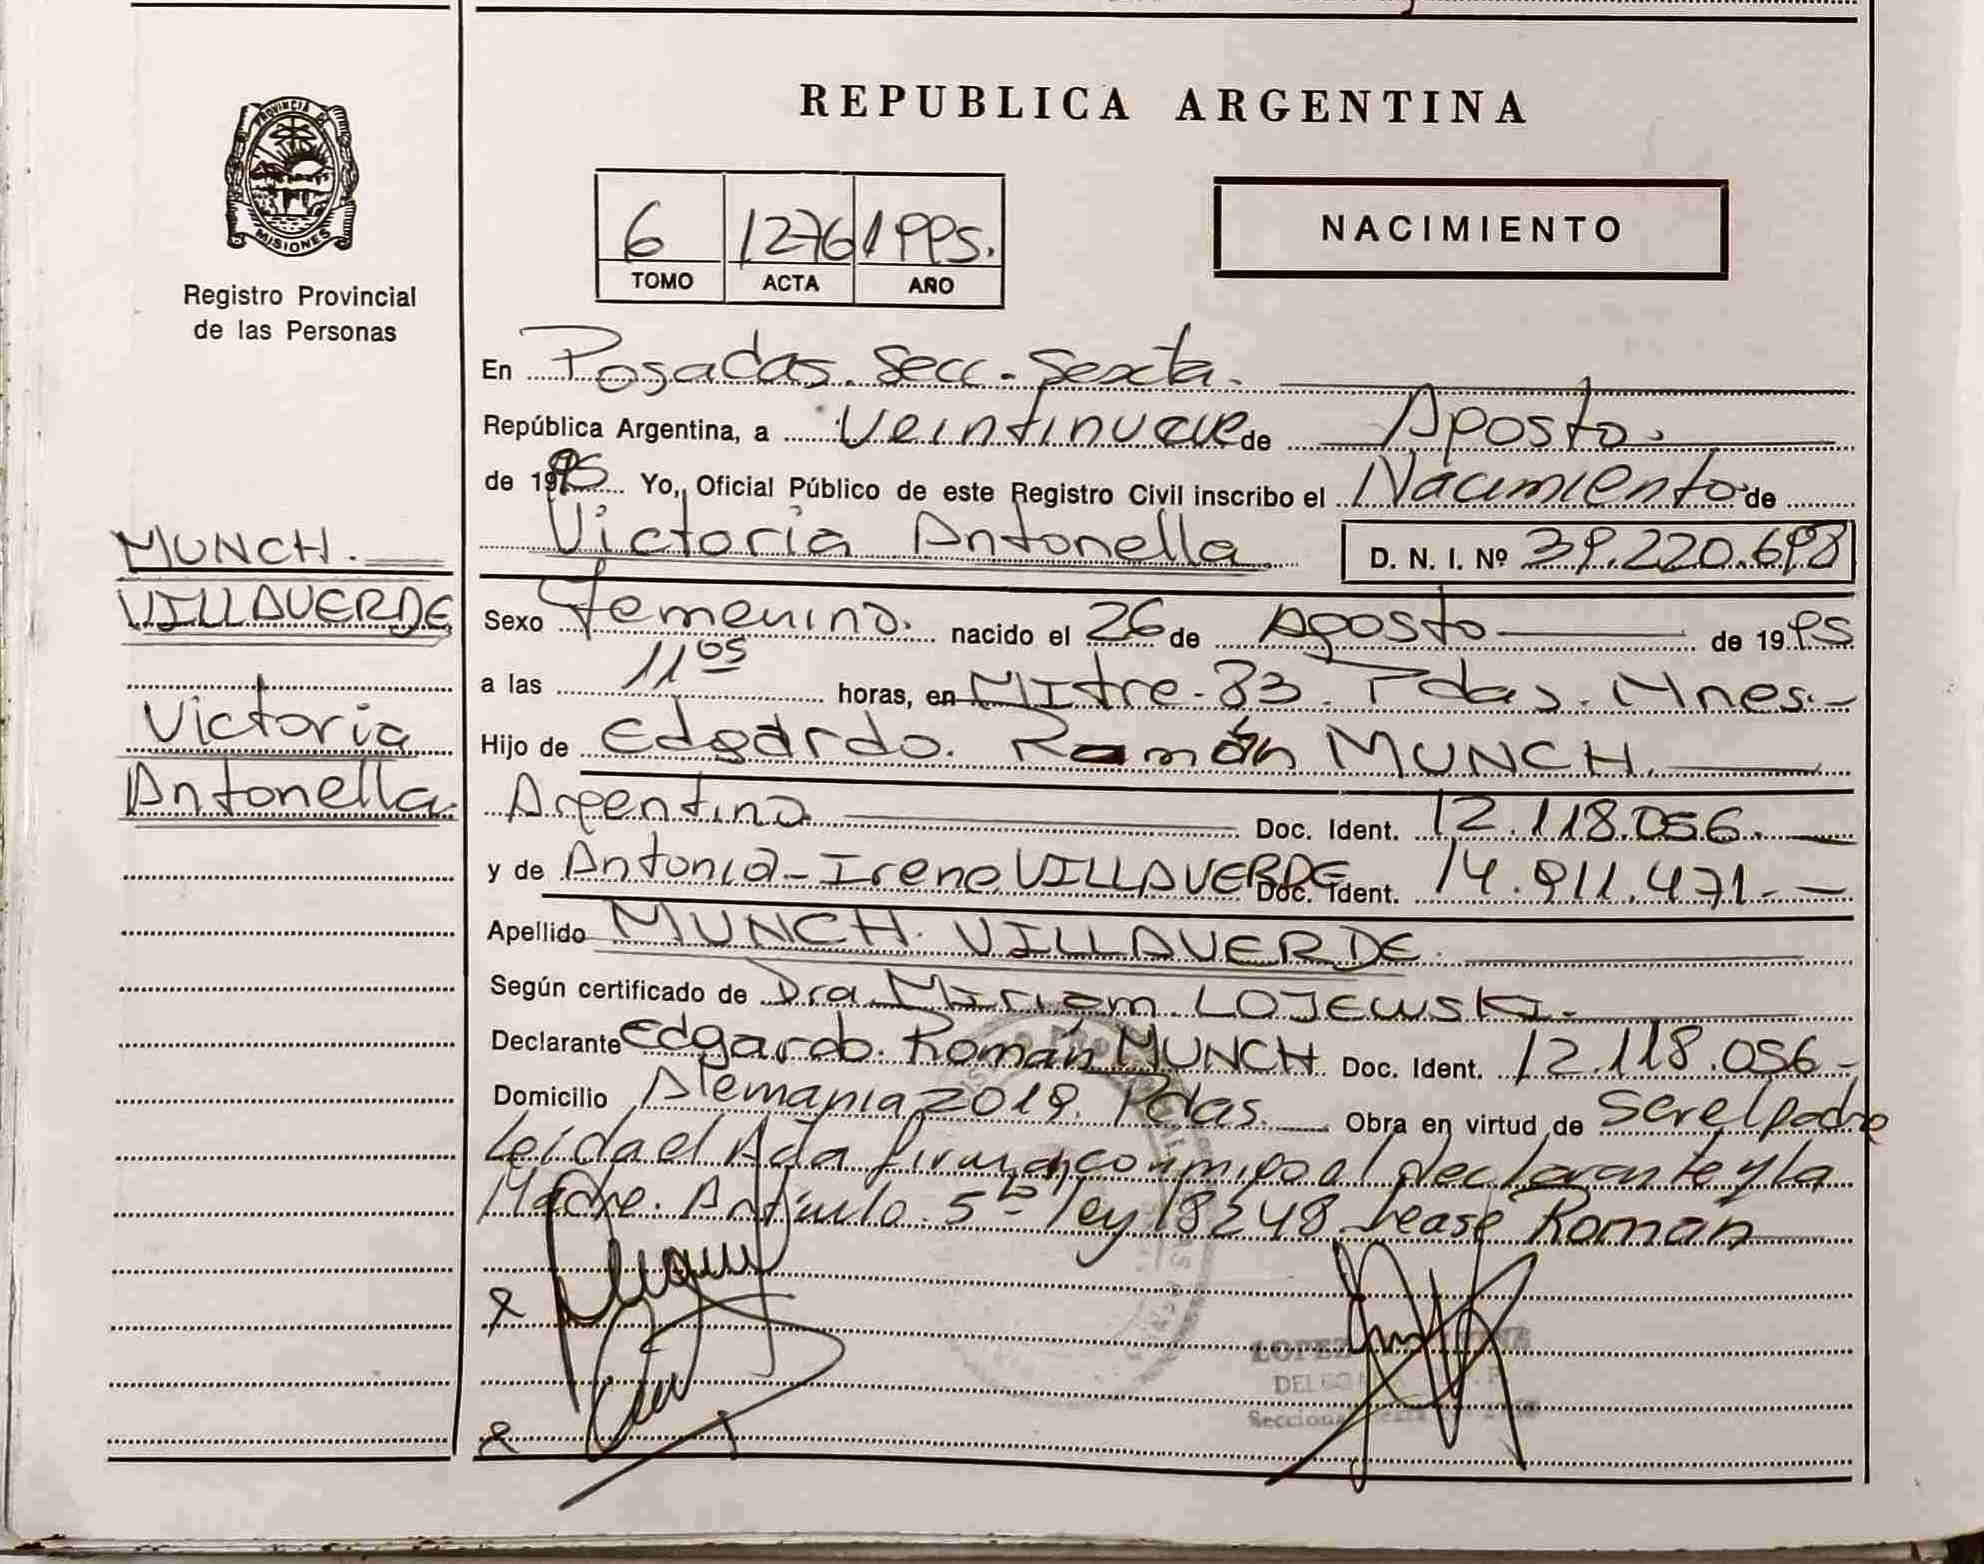 REPUBLICA ARGENTINA
PROVINCIA DE
MISIONES
Registro Provincial
de las Personas
6 1276 1995.
TOMO ACTA AÑO
NACIMIENTO
MUNCH.
VILLAVERDE
Victoria
Antonella.
En Posadas. Secc. Sexta.
República Argentina, a Veintinueve de Agosto.
de 1995 Yo, Oficial Público de este Registro Civil inscribo el Nacimiento de
Victoria Antonella D. N. I. Nº 39.220.698
Sexo femenino. nacido el 26 de Agosto de 1995
a las 11 05 horas, en Mitre-83. Pdas. Mnes.-
Hijo de Edgardo. Ramón MUNCH.
Argentina Doc. Ident. 12.118.056.
y de Antonia-Irene VILLAVERDE Doc. Ident. 14.911.471.-
Apellido MUNCH. VILLAVERDE.
Según certificado de Dra. Miriam LOJEWSKI.
Declarante Edgardo. Román MUNCH Doc. Ident. 12.118.056-
Domicilio Alemania 2019. Pdas. Obra en virtud de ser el padre
Leida el Acta firman conmigo el declarante y la
Madre. Artículo 5to ley 18248. Lease Román
LOPEZ
Secciona